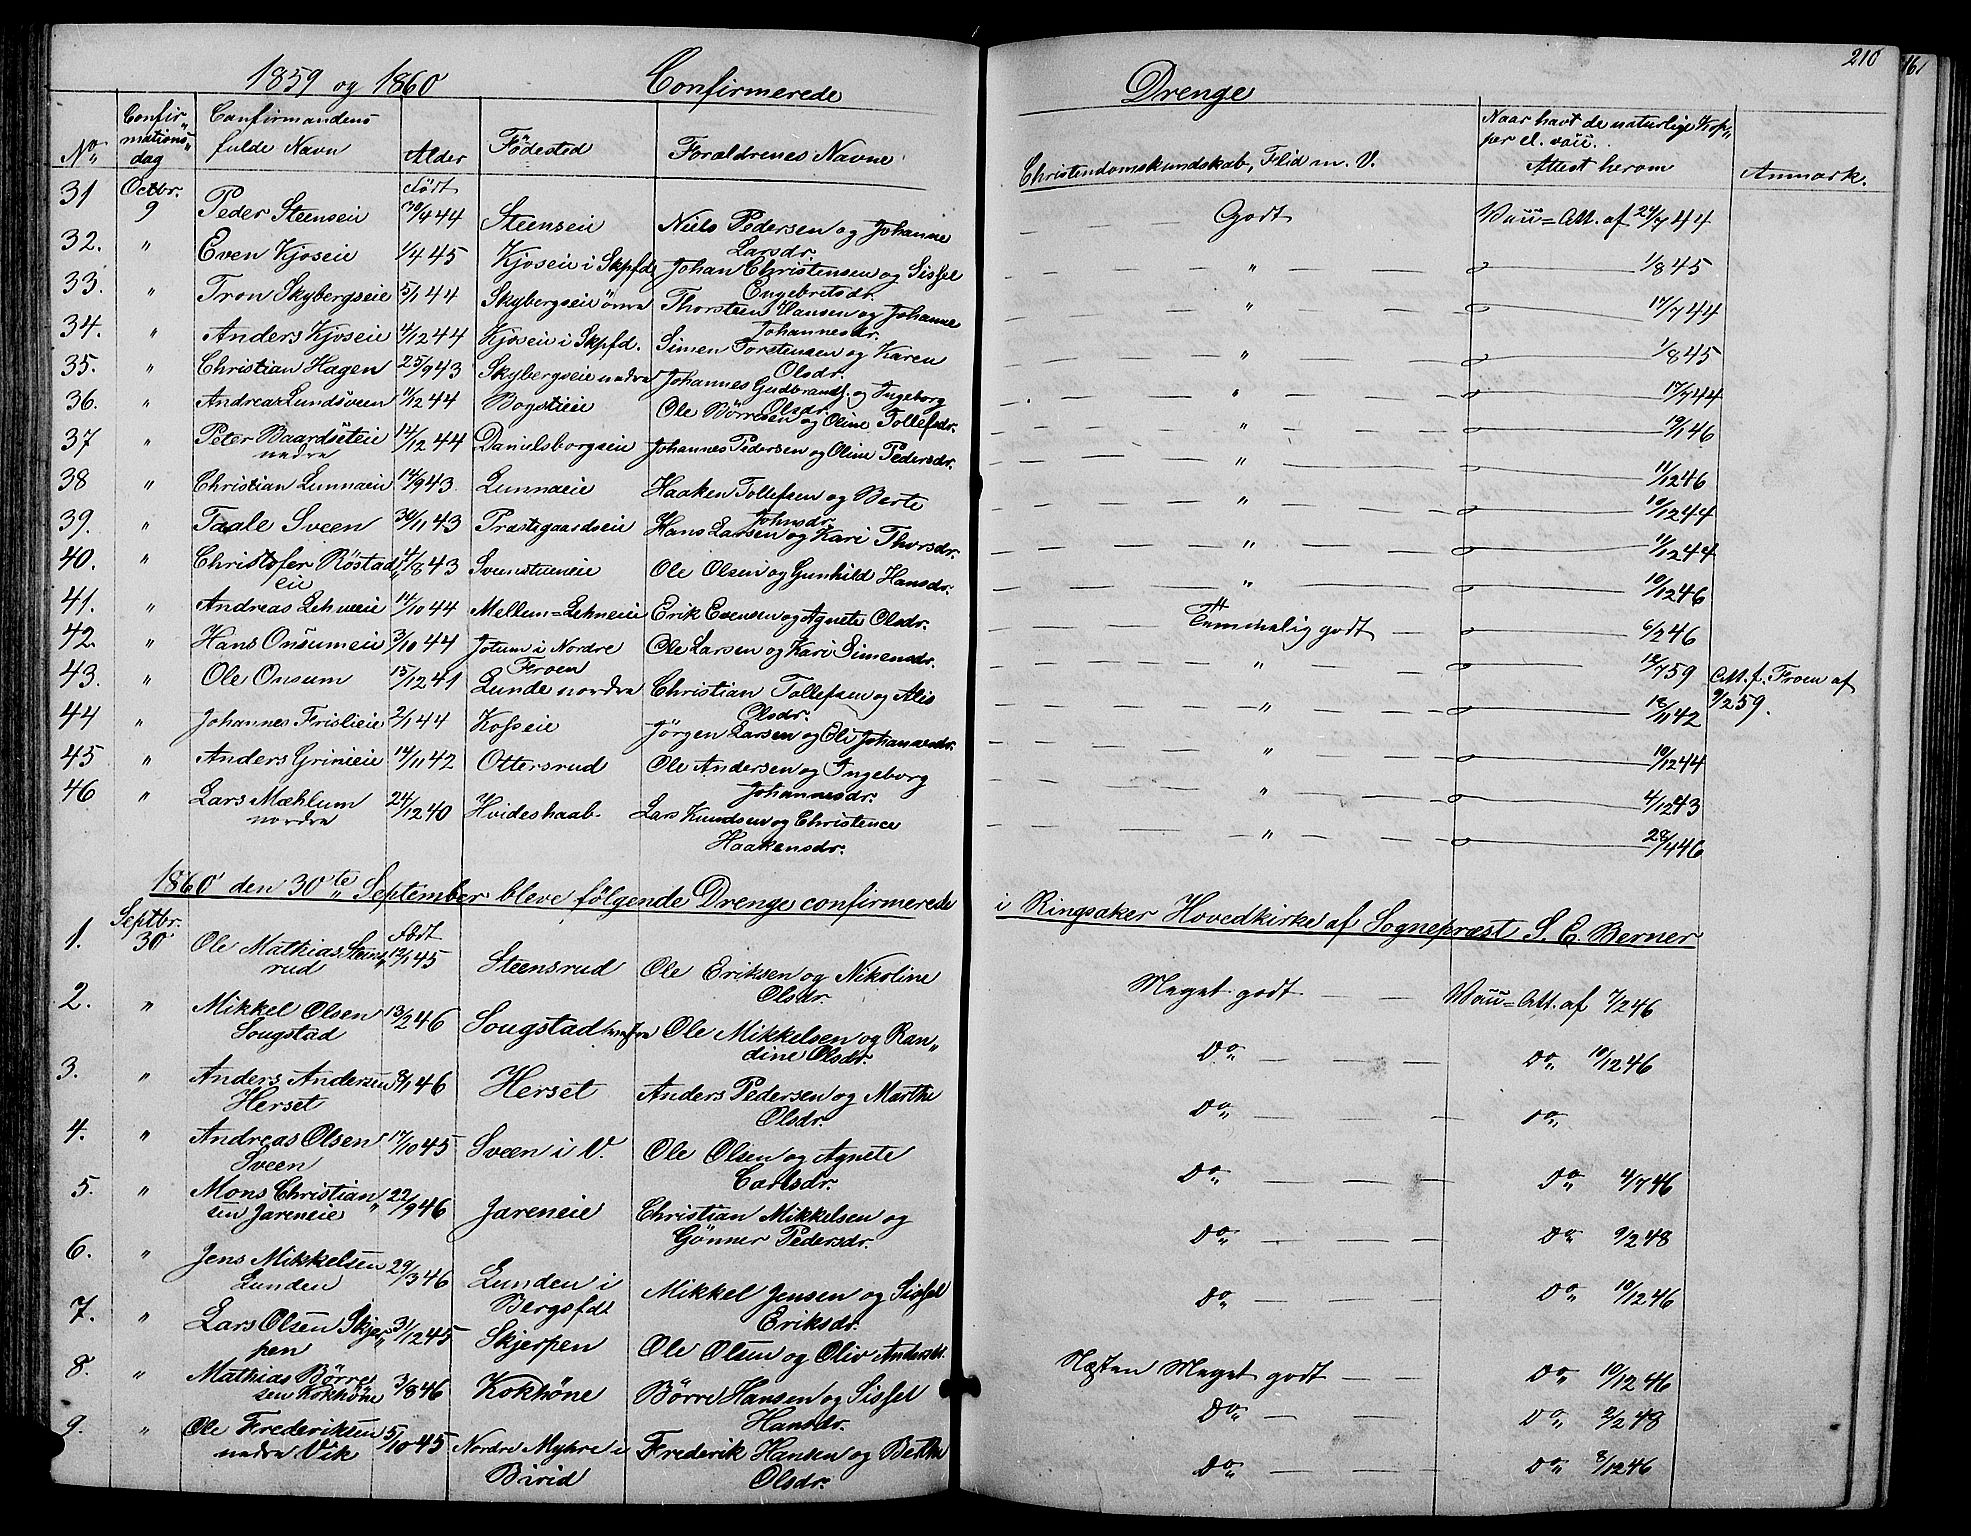 1859 og 1860 Confirmerede Drenge 210
161
No Confirmationsdag Confirmandens fulde Navn Alder Födested Forældrenes Navne Christendomskundskab, Flid m. V. Naar havt de naturlige Kopper el. vacc. Attest herom Anmærk.
31 Octbr. 9 Peder Steenseie Født 30/4 44 Steenseie Niels Pedersen og Johanne Larsdr. Godt Vacc=Att. af 24/7 44
32. " Even Kjoseie 1/4 45 Kjoseie i Skpfd Johan Christensen og Sissel Engebretsdr. " 1/8 45
33. " Tron Skybergseie 5/1 44 Skybergseie övre Thorsteen Hansen og Johanne Johannesdr. " 17/7 44
34. " Anders Kjoseie 4/12 44 Kjoseie i Skpfd. Simen Torstensen og Karen Olsdr. " 1/8 45
35. " Christian Hagen 25/9 43 Skybergseie nedre Johannes Gudbrands. og Ingeborg Olsdr. " 17/7 44
36. " Andreas Lundsveen 11/2 44 Bogstieie Ole Börresen og Oline Tollefsdr. " 19/1 46
37 " Peter Baardseteie nedre 14/12 44 Danielsborgseie Johannes Pedersen og Oline Pedersdr. " 11/12 46
38 " Christian Lunnaeie 14/9 43 Lunnaeie Haaken Tollefsen og Berte Johnsdr. " 19/12 44
39. " Taale Sveen 30/11 43 Præstegaardseie Hans Larsen og Kari Thorsdr. " 11/12 44
40. " Christofer Röstadeie 4/8 43 Sveinstueneie Ole Olsen og Gunhild Hansdr. " 19/12 46
41. " Andreas Lehneeie 14/10 44 Mellem=Lehneeie Erik Evensen og Agnete Olsdr. Temmelig godt 6/2 46
42. " Hans Onsumeie 3/10 44 Jotum i Nordre Froen Ole Larsen og Kari Simensdr. " 12/7 59 Att. f. Froen af 9/2 59.
43. " Ole Onsum 15/12 41 Lunde nordre Christian Tollefsen og Alis Olsdr. " 18/11 42
44 " Johannes Frislieie 2/1 44 Kofseie Jörgen Larsen og Eli Johannesdr. " 19/12 44
45 " Anders Grinieie 14/11 42 Ottersrud Ole Andersen og Ingeborg Johannesdr. " 4/12 43
46 " Lars Mæhlum nordre 24/12 40 Hvideskaab Lars Knudsen og Christence Haakensdr. " 28/4 46
1860 den 30te September bleve fölgende Drenge confirmerede i Ringsaker Hovedkirke af Sognepræst S. E. Berner
1. Septbr. 30 Ole Mathias Steensrud Født 12/1 45 Steensrud Ole Eriksen og Nikoline Olsdr. Meget godt Vacc=Att. af 7/2 46
2. " Mikkel Olsen Sougstad 13/2 46 Sougstad Ole Mikkelsen og Randine Olsdr. Do Do 19/12 46
3. " Anders Andersen Herset 8/1 46 Herset Anders Pedersen og Marthe Olsdr. Do Do
4. " Andreas Olsen Sveen 17/10 45 Sveen i V. Ole Olsen og Agnete Carlsdr. Do Do 4/7 46
5. " Mons Christiansen Jareneie 22/9 46 Jareneie Christian Mikkelsen og Gönner Pedersdr. Do Do 9/2 48
6. " Jens Mikkelsen Lunden 29/3 46 Lunden i Bergsfdt Mikkel Jensen og Sissel Eriksdr. Do Do 19/12 46
7. " Lars Olsen Skjerpen 31/12 45 Skjerpen Ole Olsen og Oliv Andersdt. Næsten Meget godt Do 19/12 46
8. " Mathias Börresen Kokhöne 3/8 46 Kokhöne Börre Hansen og Sissel Hansdr. Do Do 2/2 48
9. " Ole Frederiksen nedre Vik 5/10 45 Nordre Myhre i Birid Frederik Hansen og Berthe Olsdr. Do Do 8/12 46